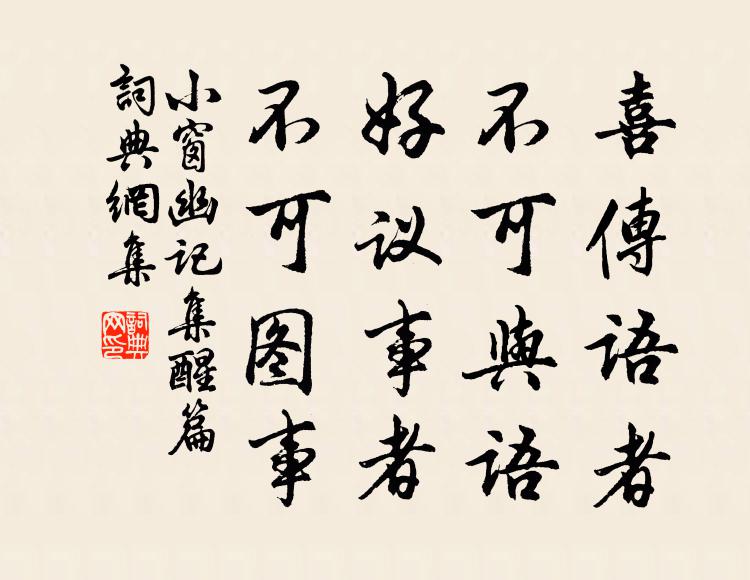 喜傳語者
不可與語
好议事者
不可图事
小窗幽记集醒篇
詞典網集
詞典网印